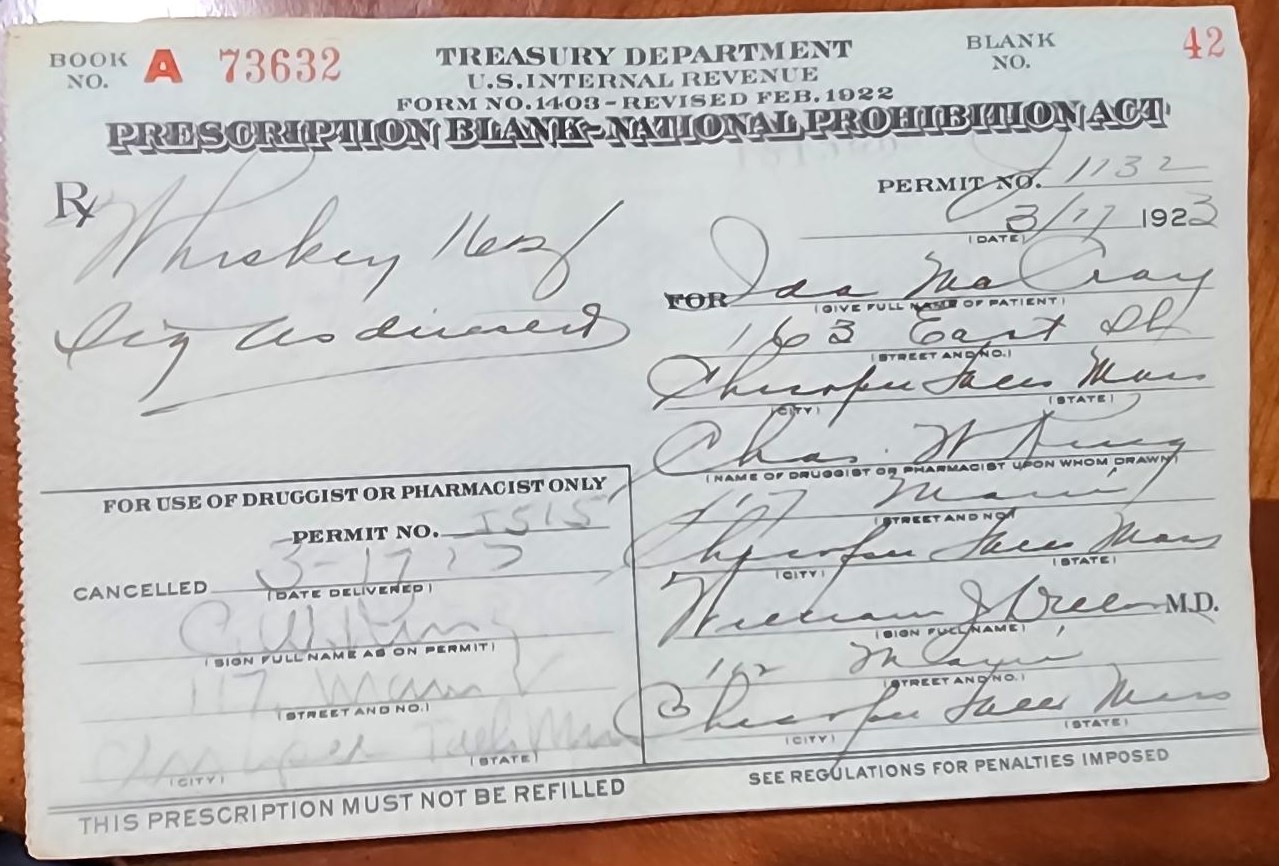 BOOK NO. A 73632
TREASURY DEPARTMENT
U.S. INTERNAL REVENUE
FORM NO. 1403 - REVISED FEB. 1922
BLANK NO. 42
PRESCRIPTION BLANK - NATIONAL PROHIBITION ACT
Rx
Whiskey 16oz
Sig as directed
PERMIT NO. 1132
3/17 1923
(DATE)
FOR Ida
(GIVE FULL NAME OF PATIENT)
163 East St
(STREET AND NO.)
Chicopee Falls Mass
(CITY) (STATE)
Chas. W King
(NAME OF DRUGGIST OR PHARMACIST UPON WHOM DRAWN)
117 Main
(STREET AND NO.)
Chicopee Falls Mass
(CITY) (STATE)
William J M.D.
(SIGN FULL NAME)
Main
(STREET AND NO.)
Chicopee Falls Mass
(CITY) (STATE)
FOR USE OF DRUGGIST OR PHARMACIST ONLY
PERMIT NO.
CANCELLED 3-17
(DATE DELIVERED)
C. W. King
(SIGN FULL NAME AS ON PERMIT)
117 Main
(STREET AND NO.)
Chicopee Falls Mass
(CITY) (STATE)
THIS PRESCRIPTION MUST NOT BE REFILLED
SEE REGULATIONS FOR PENALTIES IMPOSED